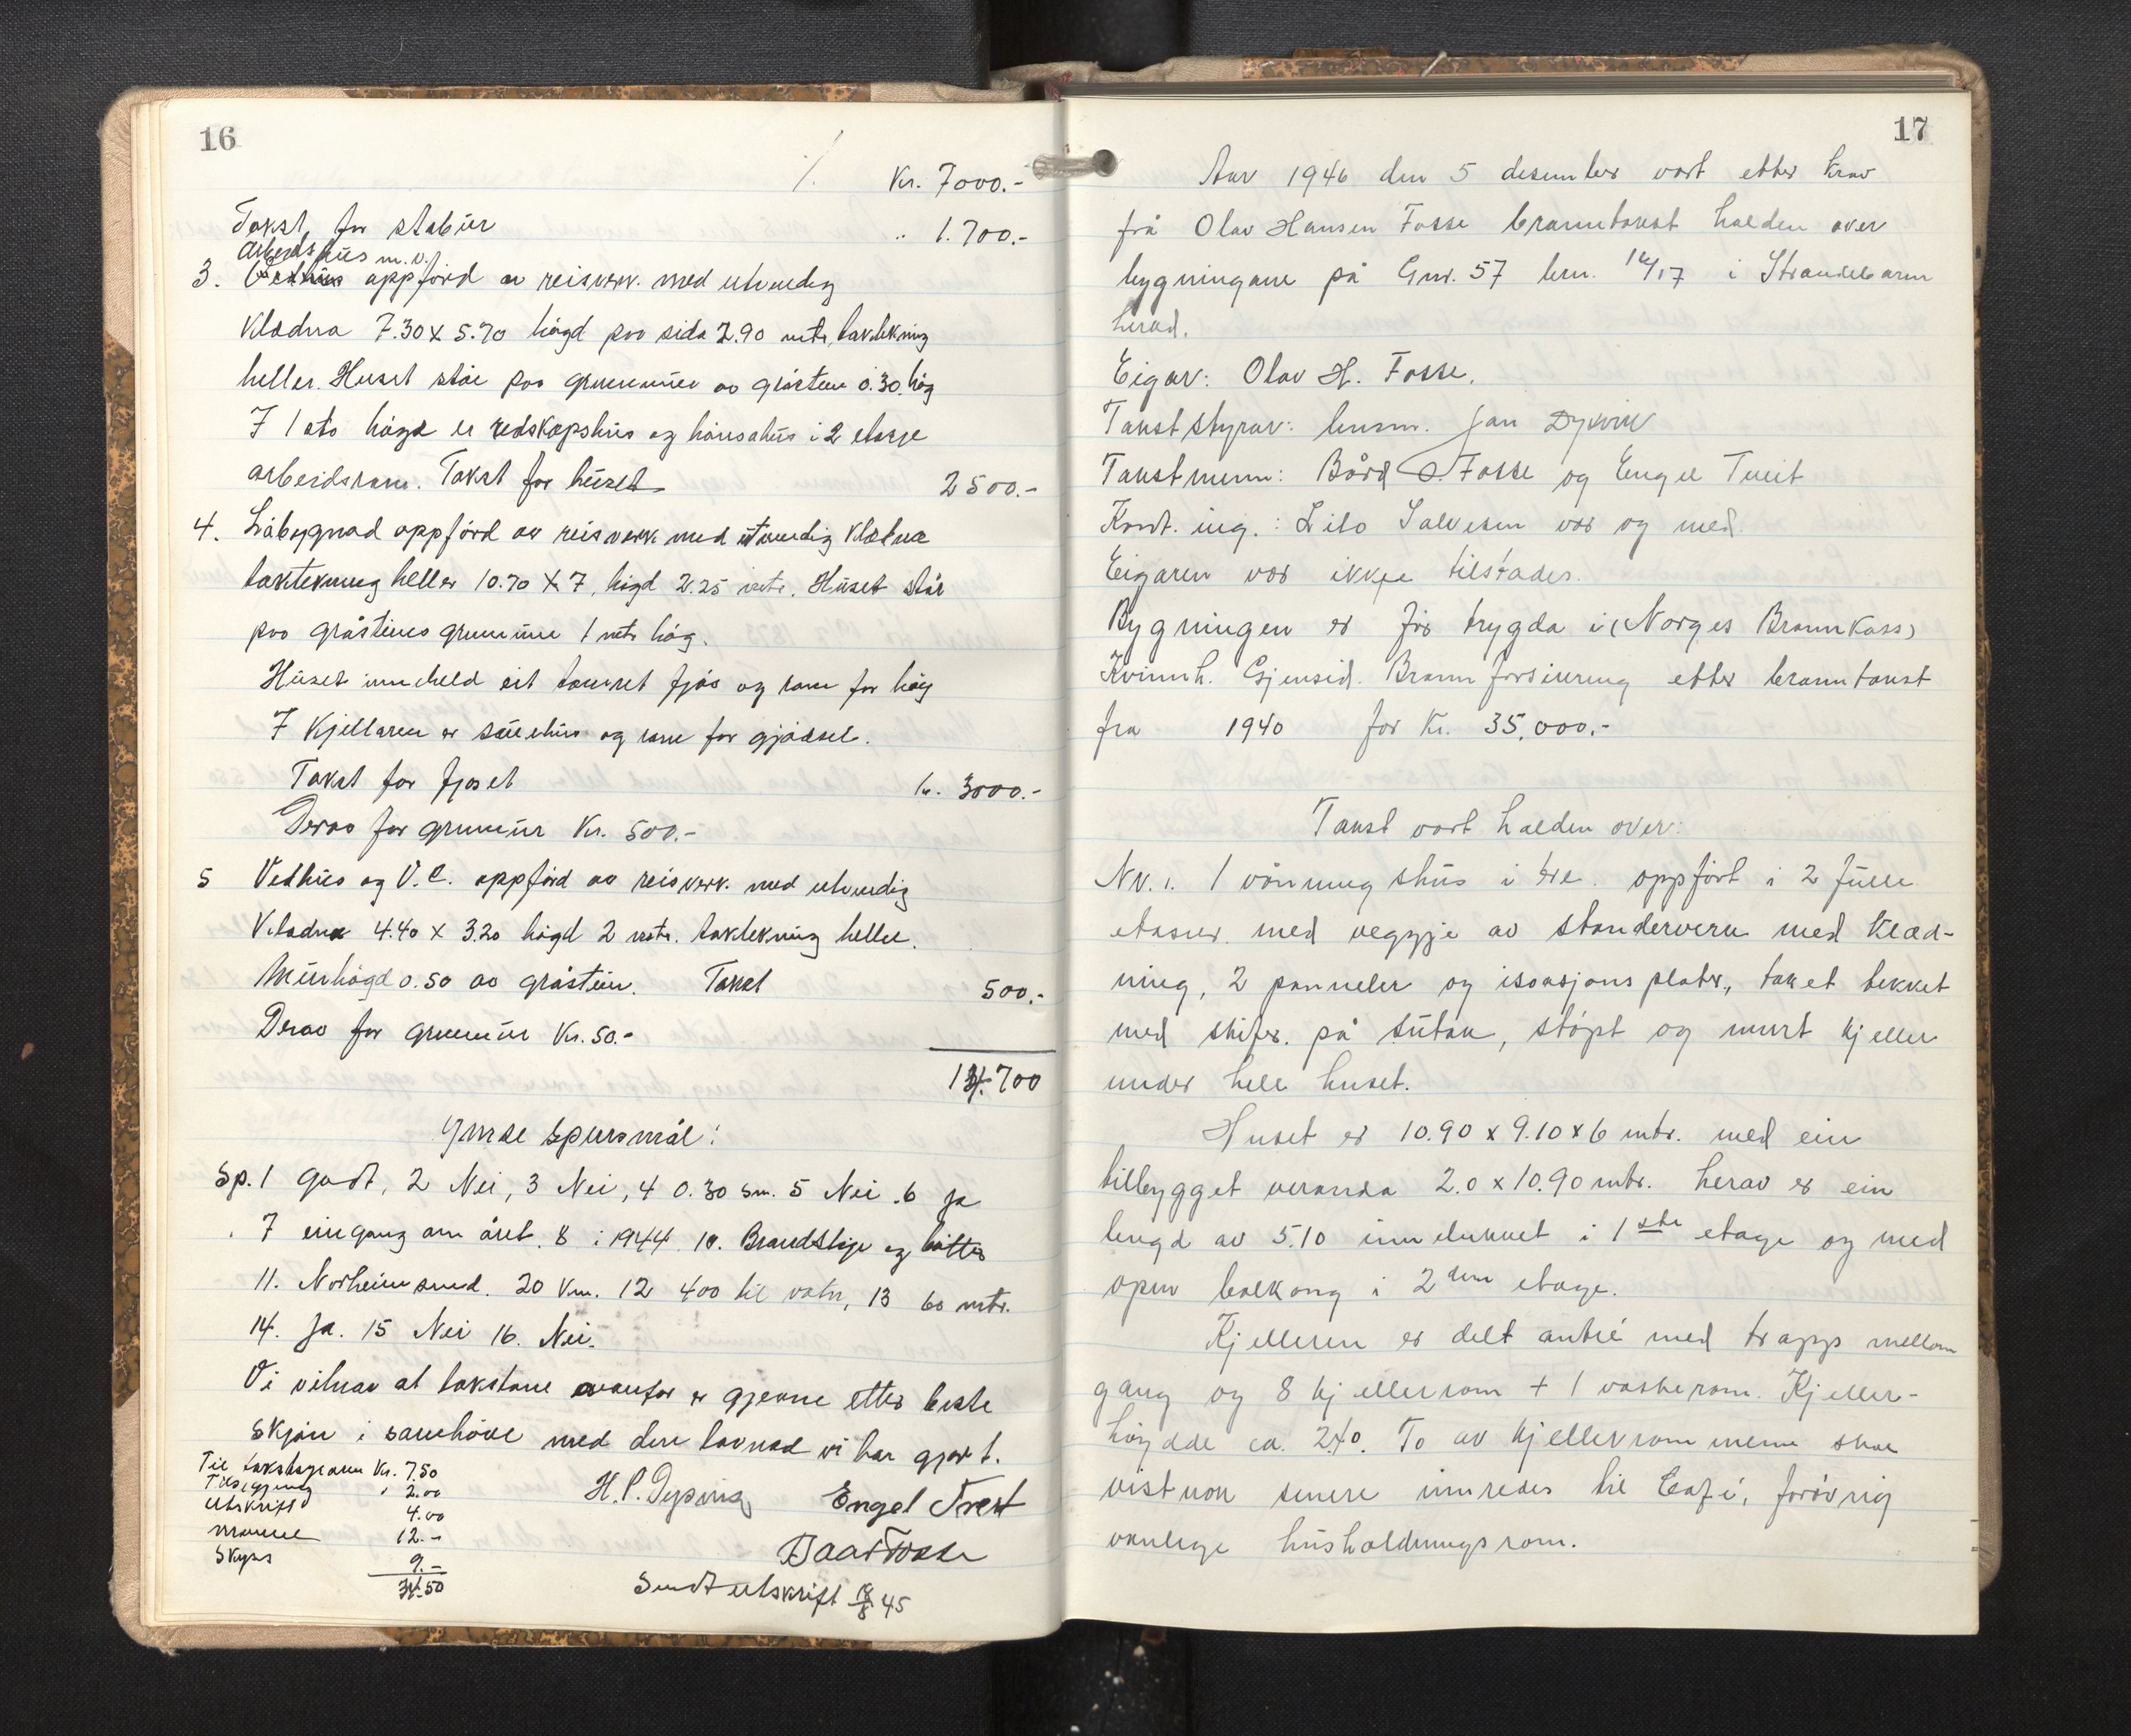 16
/. Kr. 7000.-
Takst for stabur " 1.700.-
Arbeidshus m.v.
3. oppførd av reisverk. med utvendig
Klædna 7.30 x 5.70 høgd paa sida 2.90 mtr, taktekning
heller. Huset står paa grunnmur av gråstein 0.30 høg
I 1 ets høgd er redskapshus og hønsahus i 2 etasje
arbeidsrom. Takst for huset 2500.-
4. Løbygnad oppførd av reisverk med utvendig Klædna
taktekning heller 10.70 x 7, høgd 2.25 mtr. Huset står
paa gråsteins grunnmur 1 mtr høg.
Huset inneheld eit tømret fjøs og rom for høy
I Kjellaren er sauehus og rom for gjødsel.
Takst for fjøset kr. 3000.-
Derav for grunnmur Kr. 500.-
5 Vedhus og V.C. oppførd av reisverk. med utvendig
Klædna 4.40 x 3.20 høgd 2 mtr. taktekning heller.
Murhøgd 0.50 av gråstein. Takst 500.-
Derav for grunnmur Kr. 50.-
14.700
Ymse spursmål:
Sp. 1 godt, 2 Nei, 3 Nei, 4 0.30 sm. 5 Nei. 6 Ja
7 ein gang om året. 8 i 1944. 10. Brandstige og bøtter
11. Norheimsund. 20 Km. 12 400 til vatn, 13 60 mtr.
14. Ja. 15 Nei 16. Nei.
Vi vitnar at takstane ovanfor er gjevne etter beste
skjøn i samhøve med den lovnad vi har gjort.
Til takststyraren Kr. 7.50
" 2.00
Utskrift 4.00
12.-
Skyss 9.-
34.50
H. P. Dysvig Engel Tveit
Baar Fosse
Sendt utskrift 18/8 45
17
Aar 1946 den 5 desember vart etter krav
frå Olav Hansen Fosse branntakst halden over
bygningane på Gnr. 57 brn. 16/17 i Strandebarm
herad.
Eigar: Olav H. Fosse.
Takststyrar: lensm. Jan Dysvik
Takstmenn: Bård S. Fosse og Engel Tveit
Kont. ing.: Lilo Salvesen var og med.
Eigaren var ikkje tilstades.
Bygningen er før trygda i (Norges Brannkass)
Kvinnh. Gjensid. Brannforsikring etter branntakst
fra 1940 for Kr. 35,000.-
Takst vart halden over:
Nr. 1. 1 våningshus i tre. oppført i 2 fulle
etasjer med veggje av standerverk med klæd-
ning, 2 panneler og isoasjonsplater, taket tekket
med skifer. på sutak, støpt og murt kjeller
under hele huset.
Huset er 10.90 x 9.10 x 6 mtr. med ein
tilbygget veranda 2.0 x 10.90 mtr. herav er ein
lengd av 5.10 innelukket i 1ste etage og med
open balkong i 2den etage.
Kjelleren er delt antré med trapp mellom
gang og 8 kjellerrom + 1 vaskerom. Kjeller-
høydde ca. 2.40. To av kjellerrommene skal
vistnok senere innredes til Café, forøvrig
vanlege husholdningsrom.